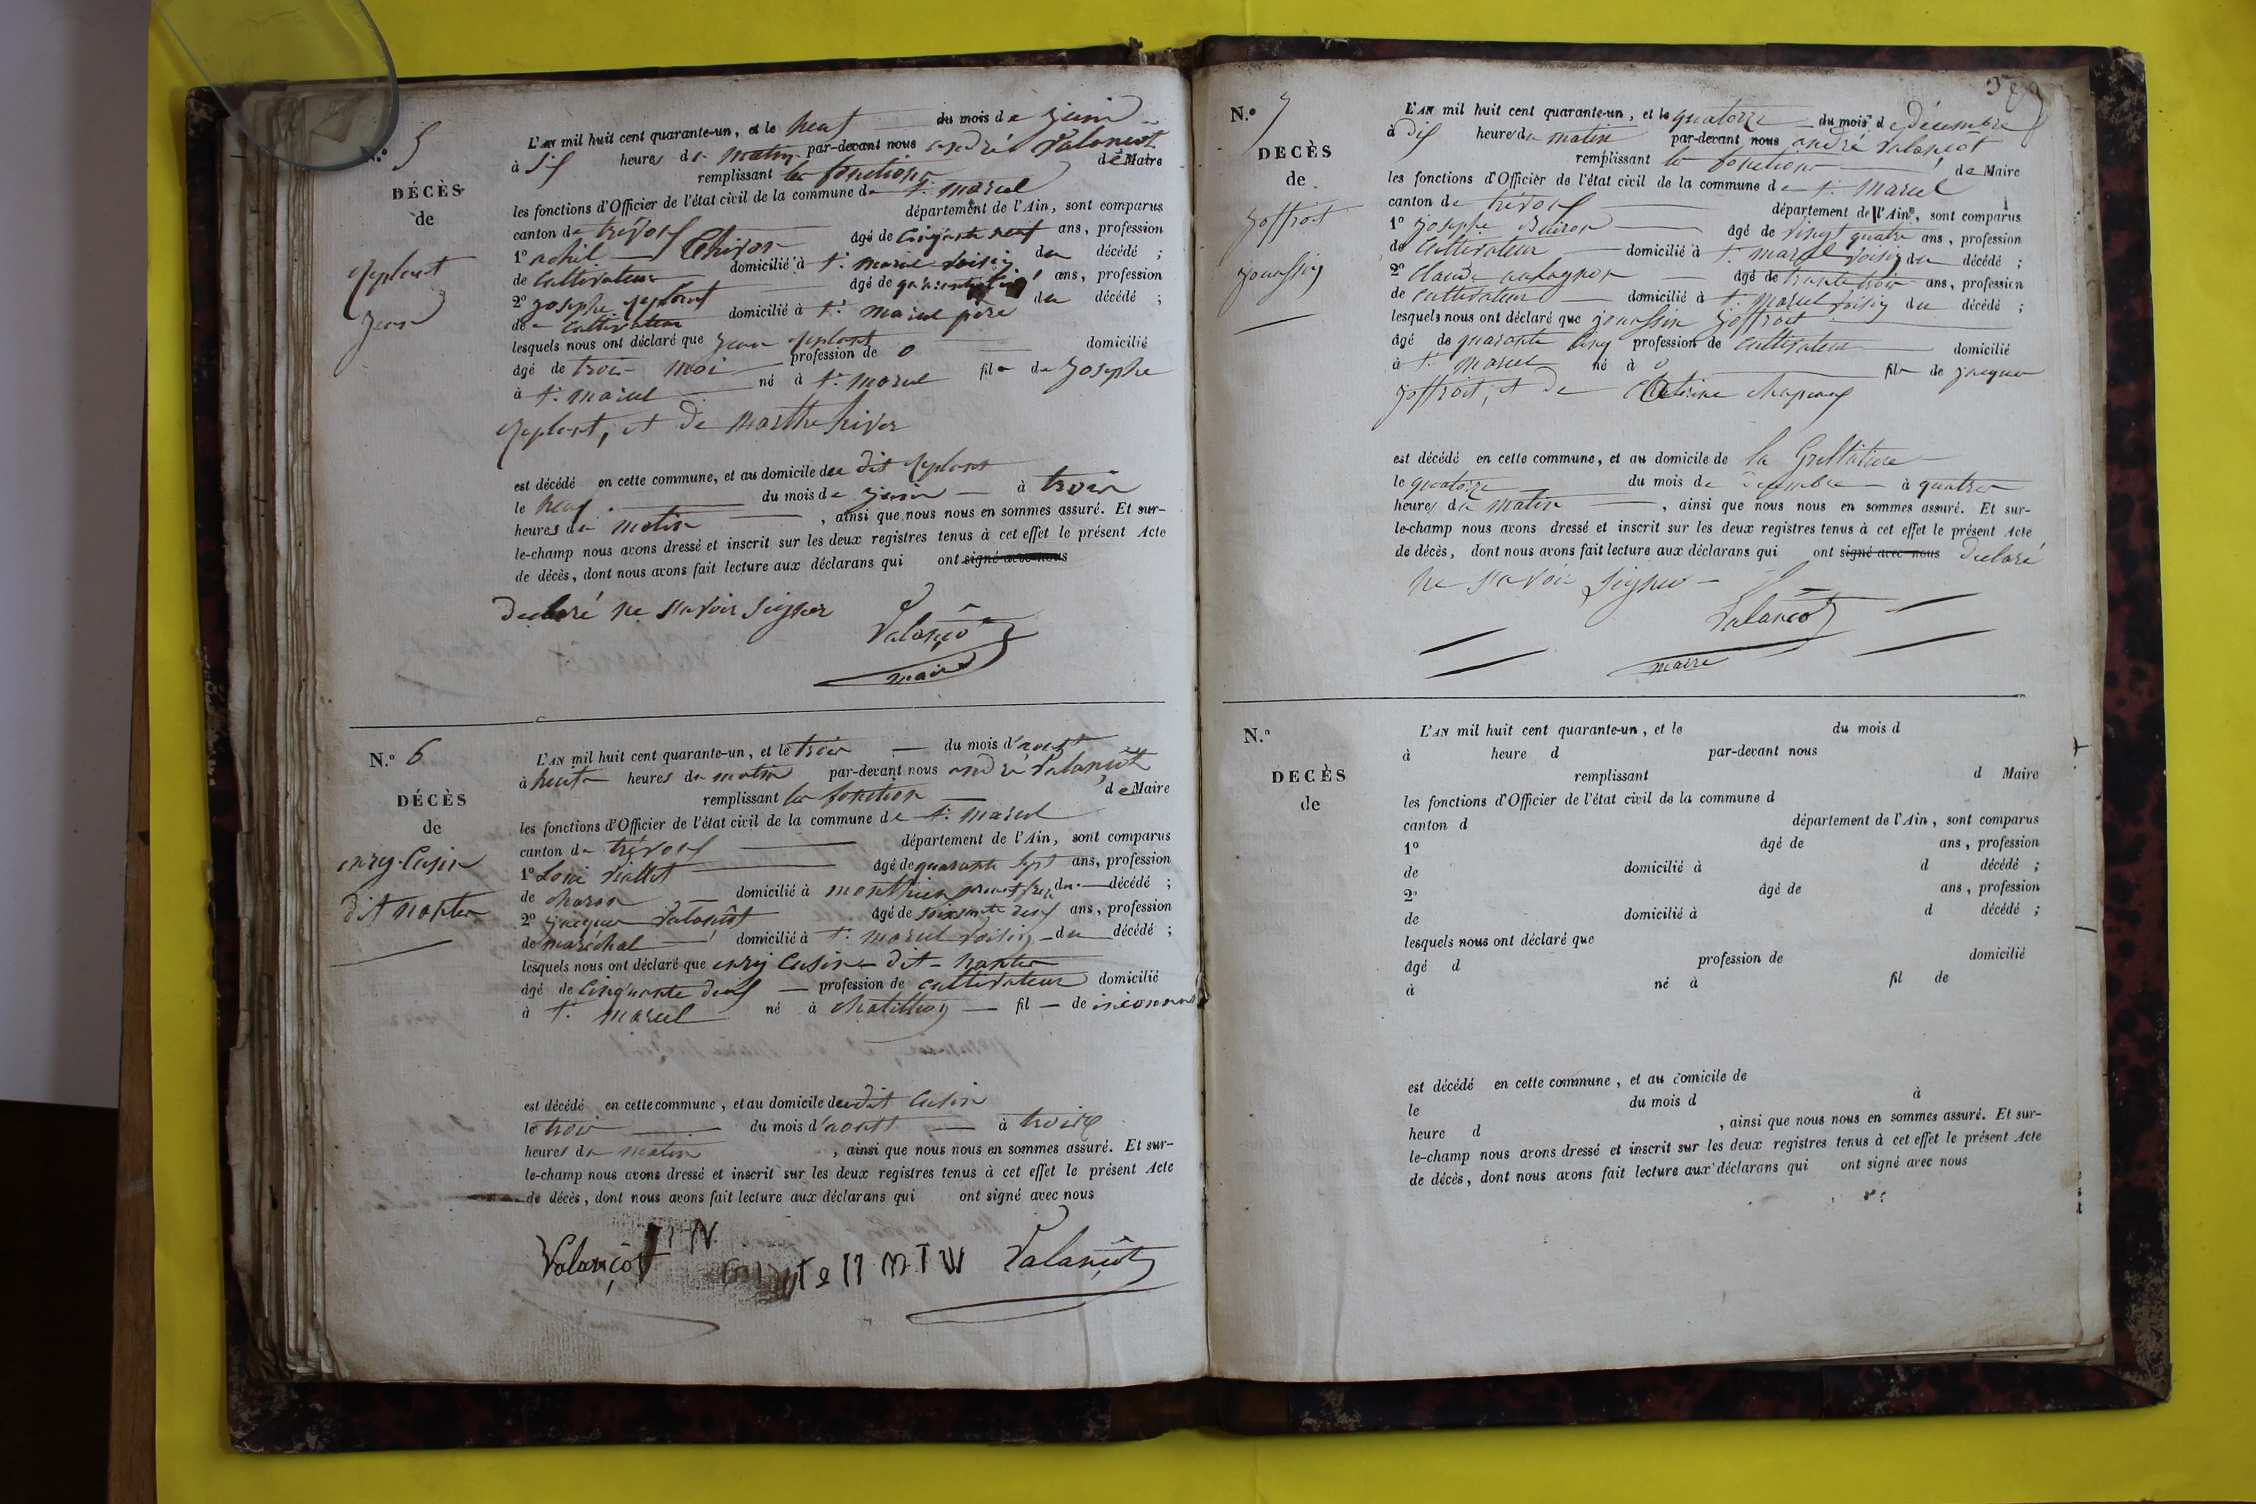 N.o 5
DÉCÈS
de
jean
L'AN mil huit cent quarante-un, et le neuf du mois de juin
à six heures du matin par-devant nous andré Valançot
remplissant les fonctions de Maire
les fonctions d'Officier de l'état civil de la commune de St. marcel
canton de trévoux département de l'Ain, sont comparus
1o âgé de cinquante neuf ans, profession
de Cultivateur domicilié à St. marcel voisin du décédé ;
2o josephe âgé de ans, profession
de cultivateur domicilié à St. marcel père du décédé ;
lesquels nous ont déclaré que jean
âgé de trois moi profession de 0 domicilié
à St. marcel né à St. marcel fils de josephe
, et de marthe
est décédé en cette commune, et au domicile du dit
le neuf du mois de juin à trois
heures du matin , ainsi que nous nous en sommes assuré. Et sur-
le-champ nous avons dressé et inscrit sur les deux registres tenus à cet effet le présent Acte
de décès, dont nous avons fait lecture aux déclarans qui ont signé avec nous
declaré ne savoir signer
Valançot
maire
N.o 6
DÉCÈS
de
enry Cusin
dit nanter
L'AN mil huit cent quarante-un, et le trois du mois d'aout
à huit heures du matin par-devant nous andré Valançot
remplissant les fonction de Maire
les fonctions d'Officier de l'état civil de la commune de St. marcel
canton de trévoux département de l'Ain, sont comparus
1o Loui viallet âgé de quarante sept ans, profession
de charon domicilié à monthieu du décédé ;
2o jacque Valançot âgé de soixante deux ans, profession
de maréchal domicilié à St. marcel voisin du décédé ;
lesquels nous ont déclaré que enry Cusin dit nanter
âgé de cinquante deux profession de cultivateur domicilié
à St. marcel né à chatillion fil de inconnus
est décédé en cette commune, et au domicile du dit Cusin
le trois du mois d'aout à trois
heures du matin , ainsi que nous nous en sommes assuré. Et sur-
le-champ nous avons dressé et inscrit sur les deux registres tenus à cet effet le présent Acte
de décès, dont nous avons fait lecture aux déclarans qui ont signé avec nous
Valançot Valançot
N.o 7
DECÈS
de
joffroit
jouassin
L'AN mil huit cent quarante-un, et le quatorze du mois de décembre
à dix heures du matin par-devant nous andré Valançot
remplissant les fonctions de Maire
les fonctions d'Officier de l'état civil de la commune de St. marcel
canton de trévoux département de l'Ain, sont comparus
1o josephe âgé de vingt quatre ans, profession
de cultivateur domicilié à St. marcel voisin du décédé ;
2o claude âgé de trante trois ans, profession
de cultivateur domicilié à St. marcel voisin du décédé ;
lesquels nous ont déclaré que jouassin joffroit
âgé de quarante cinq profession de cultivateur domicilié
à St. marcel né à 0 fils de jacque
joffroit, et de
est décédé en cette commune, et au domicile de la
le quatorze du mois de decembre à quatre
heures du matin , ainsi que nous nous en sommes assuré. Et sur-
le-champ nous avons dressé et inscrit sur les deux registres tenus à cet effet le présent Acte
de décès, dont nous avons fait lecture aux déclarans qui ont signé avec nous declaré
ne savoir signer
Valançot
maire
N.o
DECÈS
de
L'AN mil huit cent quarante-un, et le du mois d
à heure d par-devant nous
remplissant d Maire
les fonctions d'Officier de l'état civil de la commune d
canton d département de l'Ain, sont comparus
1o âgé de ans, profession
de domicilié à d décédé ;
2o âgé de ans, profession
de domicilié à d décédé ;
lesquels nous ont déclaré que
âgé d profession de domicilié
à né à fil de
est décédé en cette commune, et au domicile de
le du mois d à
heure d , ainsi que nous nous en sommes assuré. Et sur-
le-champ nous avons dressé et inscrit sur les deux registres tenus à cet effet le présent Acte
de décès, dont nous avons fait lecture aux déclarans qui ont signé avec nous